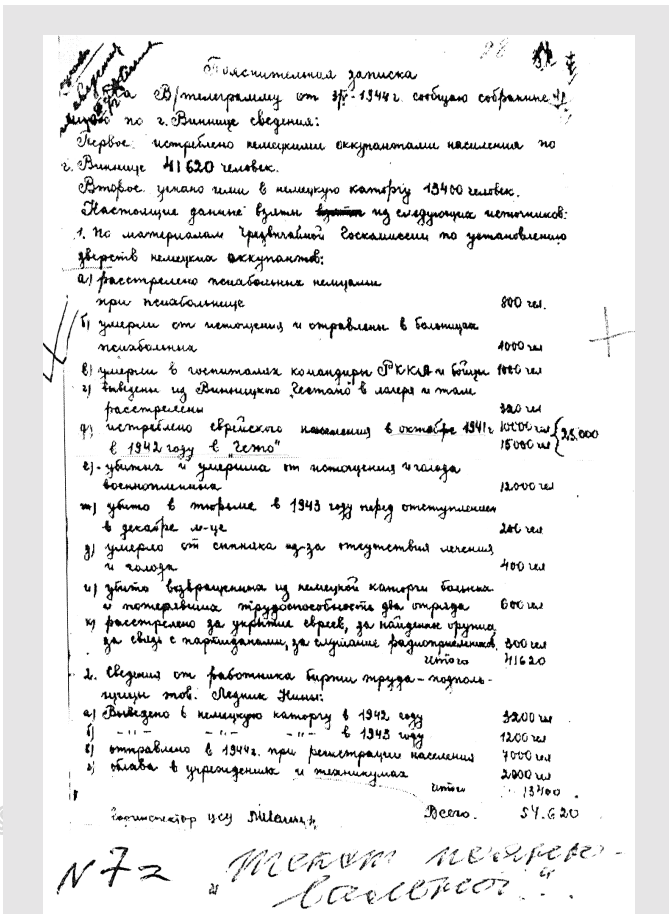 Пояснительная записка
На В/телеграмму от 3/IV-1944г. сообщаю собранные
по г. Виннице сведения:
Первое: истреблено немецкими оккупантами населения по
г. Виннице 41620 человек.
Второе: угнано ими в немецкую каторгу 13400 человек.
Настоящие данные взяты из следующих источников:
1. По материалам Чрезвычайной Госкомиссии по установлению
зверств немецких оккупантов:
а) расстрелено психбольных немцами
при психбольнице 800 чел.
б) умерли от истощения и отравлены в больницах
психбольных 1000 чел
в) умерли в госпиталях командиры РККА и бойцы 1000 чел
г) выведены из Винницкого "Гестапо" в лагеря и там
расстрелены 320 чел
д) истреблено еврейского населения в октябре 1941г 10000 чел
в 1942 году в "Гетто" 15000 чел 25.000
е) убитых и умерших от истощения и голода
военнопленных 12000 чел
ж) убито в тюрьме в 1943 году перед отступлением
в декабре м-це 200 чел
з) умерло от сыпняка из-за отсутствия лечения
и голода 400 чел
и) убито возвращенных из немецкой каторги больных
и потерявших трудоспособность два отряда 600 чел
к) расстрелено за укрытие евреев, за найденное оружие,
за связь с партизанами, за слушание радиоприемников. 300 чел
Итого 41620
2. Сведения от работника биржи труда - подполь-
щицы тов. Ледник Нины:
а) Выведено в немецкую каторгу в 1942 году 3200 чел
б) -"- -"- -"- в 1943 году 1200 чел
в) отправлено в 1944г. при регистрации населения 7000 чел
г) облава в учреждениях и техникумах 2000 чел
Итого 13400
Госинспектор ЦСУ Всего. 54.620
N 7а текст